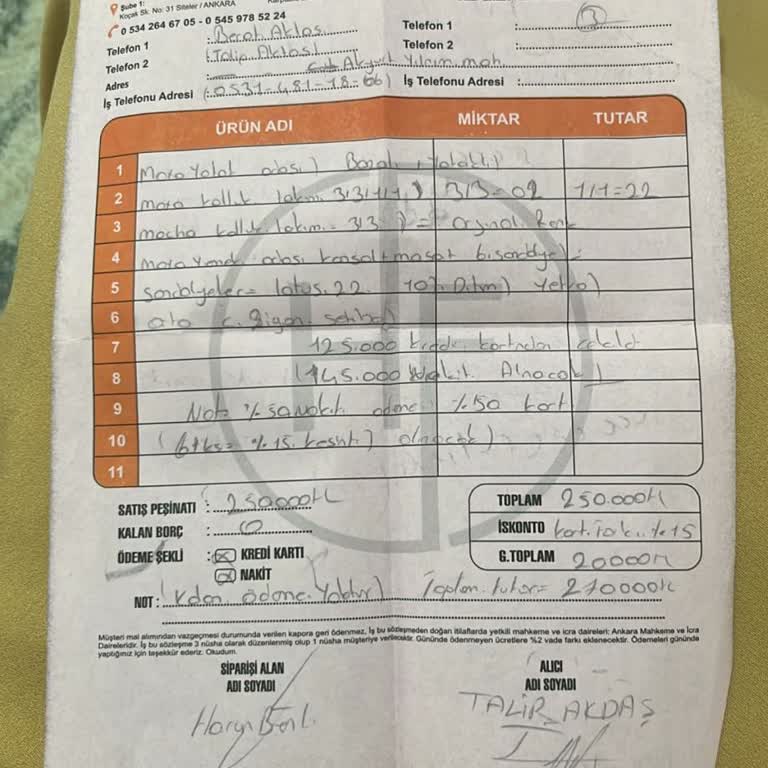 Şube 1:
Koçak Sk. No: 31 Siteler / ANKARA
0 534 264 67 05 - 0 545 978 52 24
Telefon 1 : Berat Aktas Telefon 1 : 3
Telefon 2 (Talip Aktas) Telefon 2 :
Adres Akyurt Yıldırım mah
İş Telefonu Adresi (:0531-481-78-66) İş Telefonu Adresi :
ÜRÜN ADI MİKTAR TUTAR
1 yatak odası) Bazalı
2 koltuk takımı 3/3/1/1) 3/3=02 1/1=22
3 mocha koltuk takımı= 3/3 ) = Orjinal Renk
4 yemek odası konsol+masa+ 6 sandalye):
5 Sandalyeler= lotus.22
6 orta sehba)
7 125.000 kredi kartından çekildi
8 (145.000 Nakit Alınacak)
9 Not= %50 Nakit ödeme %50 kart
10 %15 olacak)
11
SATIŞ PEŞİNATI : 250000TL TOPLAM 250.000TL
KALAN BORÇ : 0 İSKONTO %15
ÖDEME ŞEKLİ : KREDİ KARTI G.TOPLAM 20000TL
NAKİT
NOT : ödeme Yoktur) Toplam tutar= 270000TL
Müşteri mal alımından vazgeçmesi durumunda verilen kapora geri ödenmez, İş bu sözleşmeden doğan itilaflarda yetkili mahkeme ve icra daireleri: Ankara Mahkeme ve İcra
Daireleridir. İş bu sözleşme 3 nüsha olarak düzenlenmiş olup 1 nüsha müşteriye verilecektir. Gününde ödenmeyen ücretlere %2 vade farkı eklenecektir. Ödemeleri gününde
yaptığınız için teşekkür ederiz. Okudum.
SİPARİŞİ ALAN ALICI
ADI SOYADI ADI SOYADI
TALİP AKDAŞ